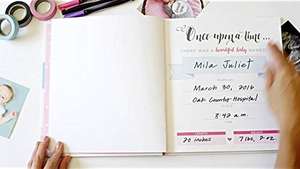 Once upon a time...
THERE WAS A beautiful baby NAMED
Mila Juliet
March 30, 2016
Oak Country Hospital
8:42 a.m.
20 inches
7 lbs, 2 oz